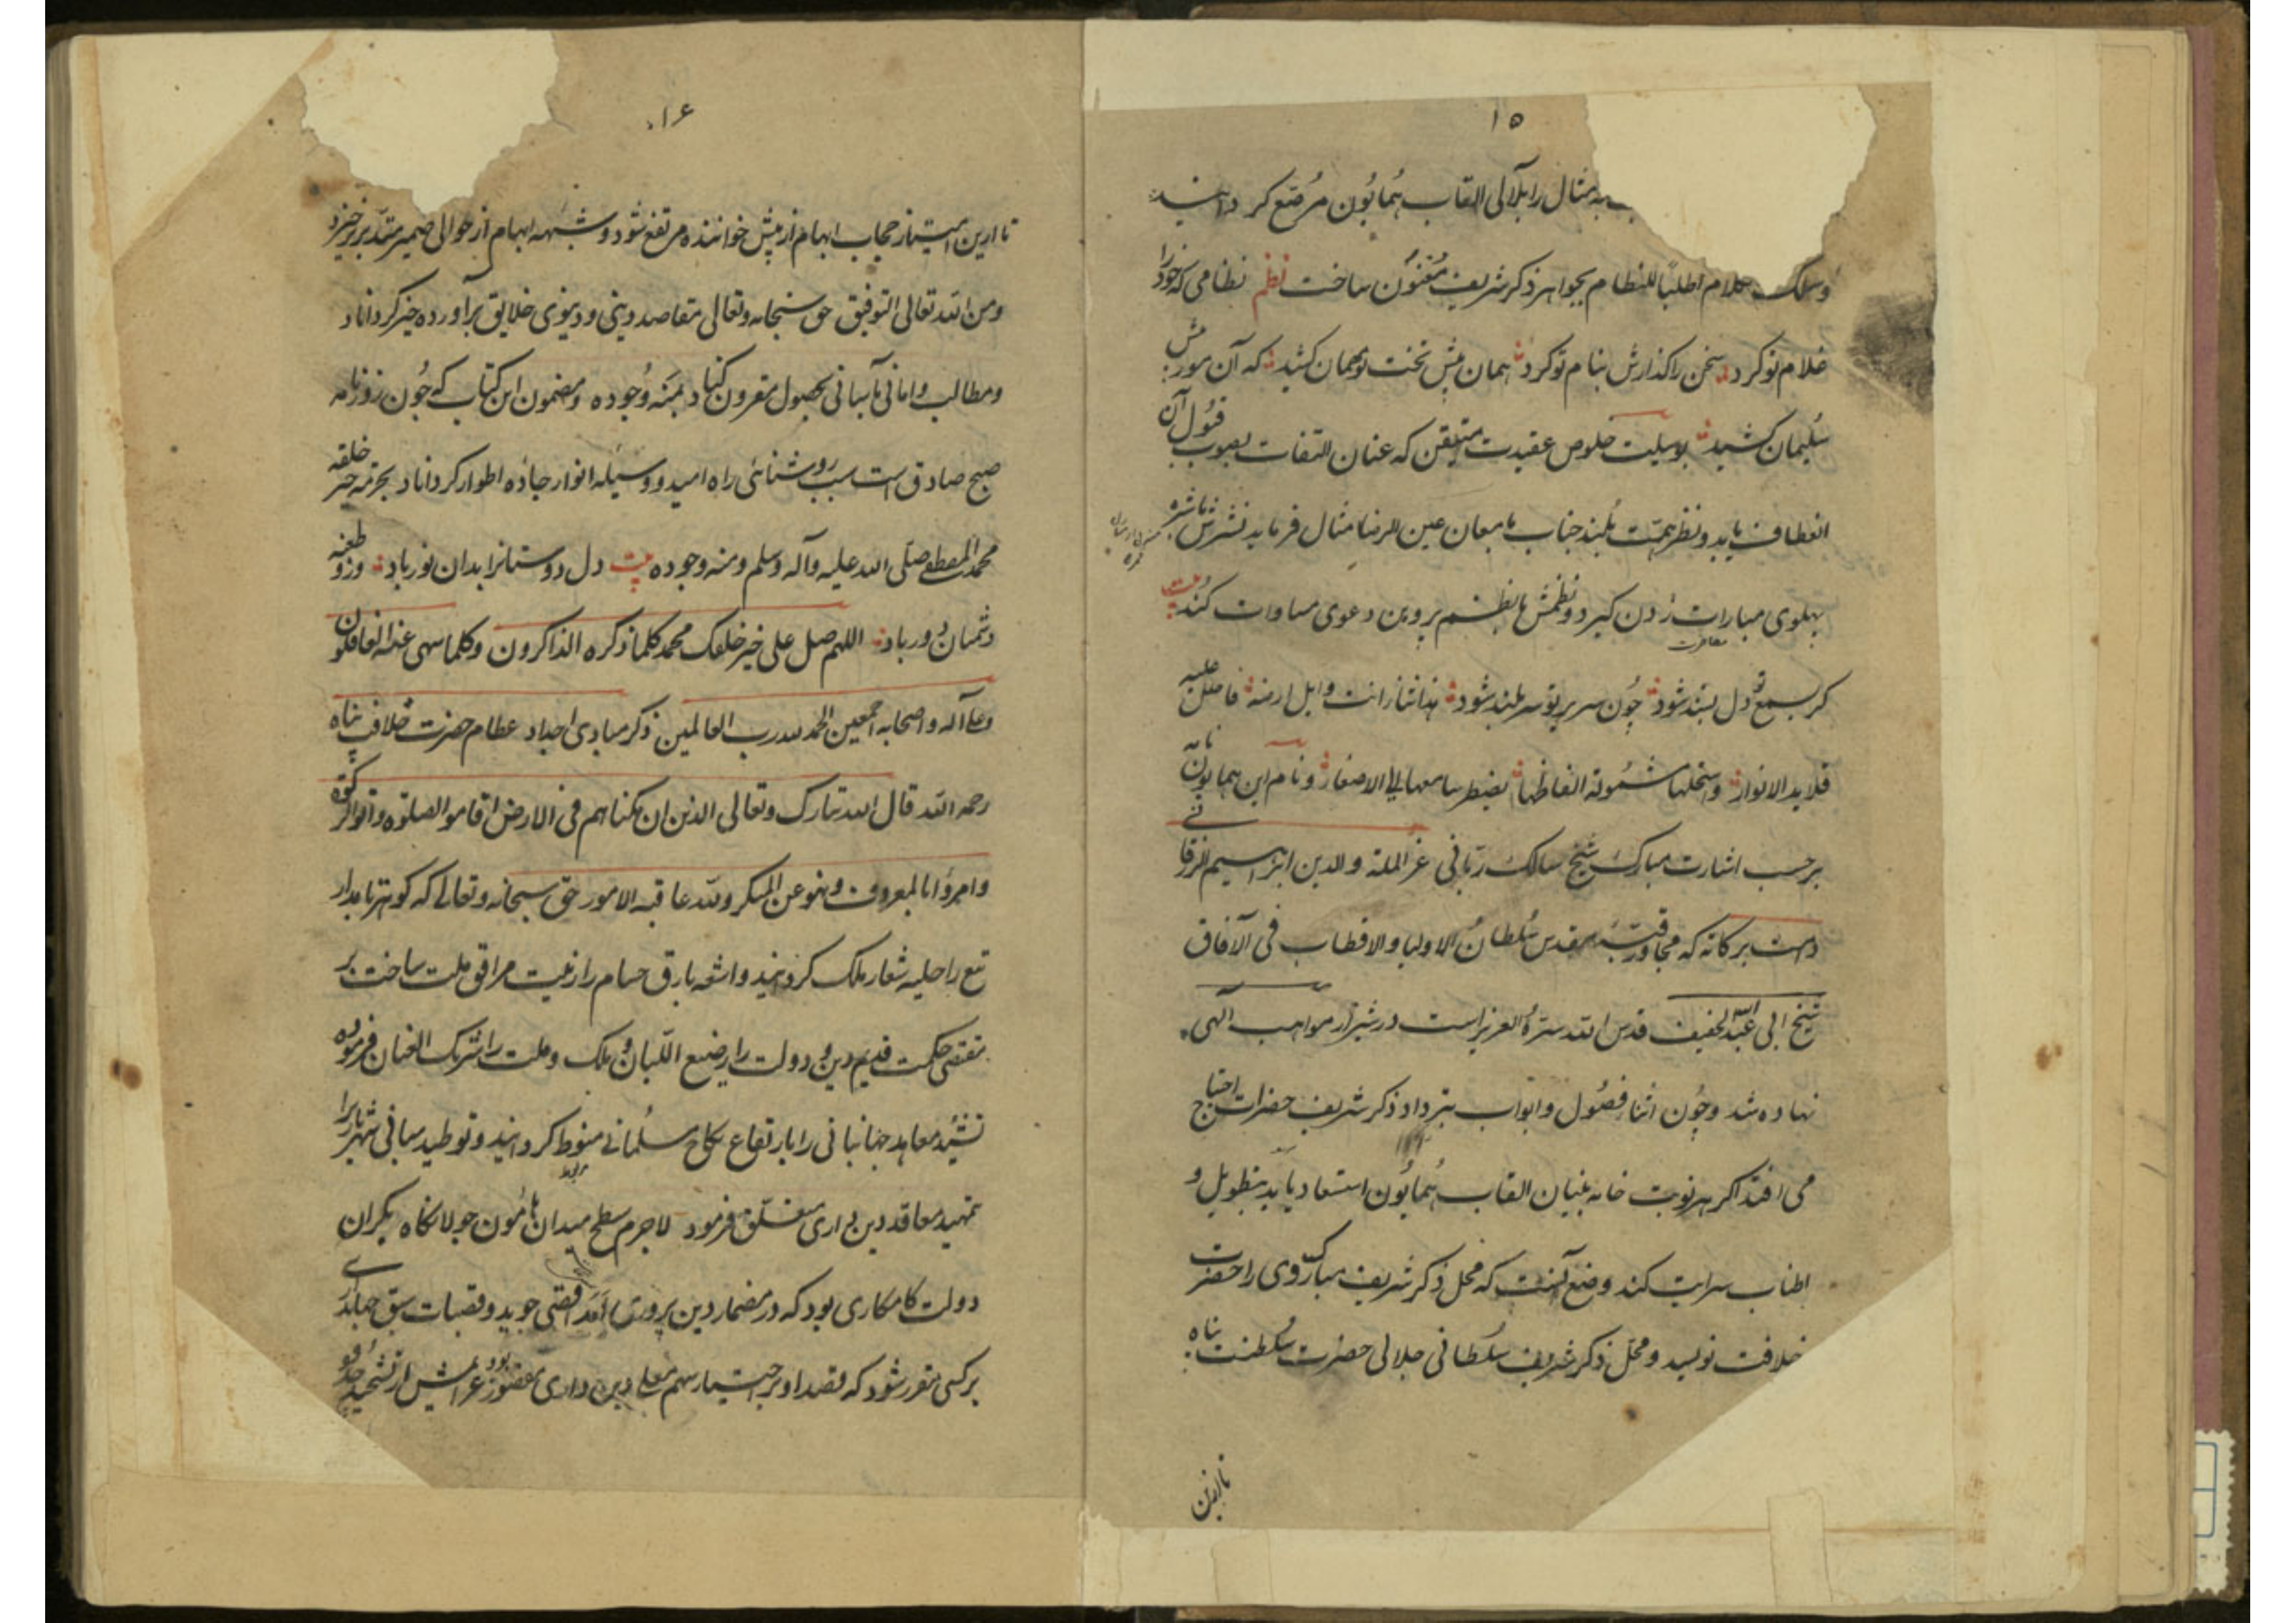 ۱۵
مثال را بلآلی القاب همایون مرصع کردانید
وسلک کلام اطلباً للنظام بجواهر ذکر شریف مقنون ساخت نظم نظامی که خود را
غلام تو کرد سخن را کذارش بنام تو کرد همان پیش تخت تو مهمان کشید که آن مور پیش
سلیمان کشید بوسیلت خلوص عقیدت متیقن که عنان التفات بصوب قبول آن
انعطاف یابد و نظر همت بلند جناب بامعان عین الرضا مثال فرماید نثرش با نثره
پهلوی مبارات زدن کیرد و نظمش با نظم پروین دعوی مساوات کند بیت
کر بسمع تو دل پسند شود چون سریر تو سر بلند شود
قلاید الانوار الفاظها سامعها الاصغار و نام این همایون نامه
برحسب اشارت مبارک شیخ سالک ربانی عز الملة والدین ابراهیم
دامت برکاته که مجاور مقدس سلطان الاولیا والاقطاب فی الآفاق
شیخ ابی عبدالله خفیف قدس الله سره العزیز است در شیراز مواهب الهی
نهاده شد وچون اثنا فصول و ابواب بترداد ذکر شریف حضرات احتیاج
می افتد اکر هر نوبت خامه ببنیان القاب همایون استسعاد یابد بتطویل و
اطناب سرایت کند وضع آنست که محل ذکر شریف مبارک وی را حضرت
خلافت نویسد و محل ذکر شریف سلطانی جلالی حضرت سلطنت پناه
تا ازین
۱۶
تا ازین امتیاز حجاب ابهام از پیش خواننده مرتفع شود و شبهه ابهام از حوالی ضمیر متدبر برخیزد
ومن الله تعالی التوفیق حق سبحانه وتعالی مقاصد دینی ودنیوی خلایق برآورده خیر کرداناد
ومطالب وامانی بحصول مقرون کناد بمنه وجوده ومضمون این کتاب که چون روزنامه
صبح صادق است سبب روشنائی راه امید و وسیله انوار جاده اطوار کرداناد بحرمة خیر خلقه
محمد المصطفی صلی الله علیه وآله وسلم ومنه وجوده بیت دل دوستانرا بدان نور باد وزو طعنه
دشمنان دور باد اللهم صل علی خیر خلقک محمد کلما ذکره الذاکرون وکلما سهی عنه الغافلون
وعلی آله واصحابه اجمعین الحمد لله رب العالمین ذکر مبادی اجداد عظام حضرت خلافت پناه
رحمه الله قال الله تبارک وتعالی الذین ان مکناهم فی الارض اقاموا الصلوة وآتوا الزکوة
وامروا بالمعروف ونهو عن المنکر ولله عاقبة الامور حق سبحانه وتعالی که کوهر تابدار
تیغ را حلیه شعار ملک کردانید واشعه بارق حسام را زینت مرافق ملت ساخت بر
مقتضی حکمت قدیم دین و دولت را رضیع اللبان و ملک و ملت را شریک العنان فرموده
تشیید معاهد جهانبانی را بارتفاع کاخ مسلمانی منوط کردانید و توطید مبانی شهریاری را
بتمهید معاقد دین داری متعلق فرمود لاجرم سطح میدان هامون جولانکاه یکران
دولت کامکاری بود که در مضمار دین پروری امد اقصی جوید و قصبات سبق
برکسی مقرر شود که قصد او برحمایت دین داری مقصور بود